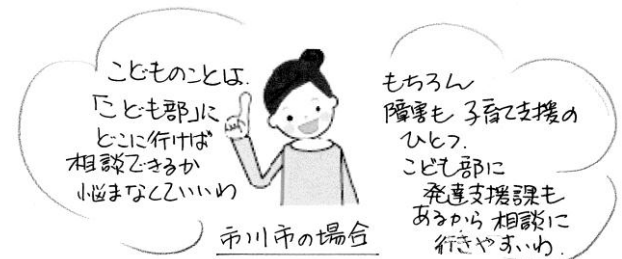 こどものことは、
「こども部」に
どこに行けば
相談できるか
悩まなくていいわ
もちろん
障害も子育て支援の
ひとつ.
こども部に
発達支援課も
あるから相談に
行きやすいわ.
市川市の場合